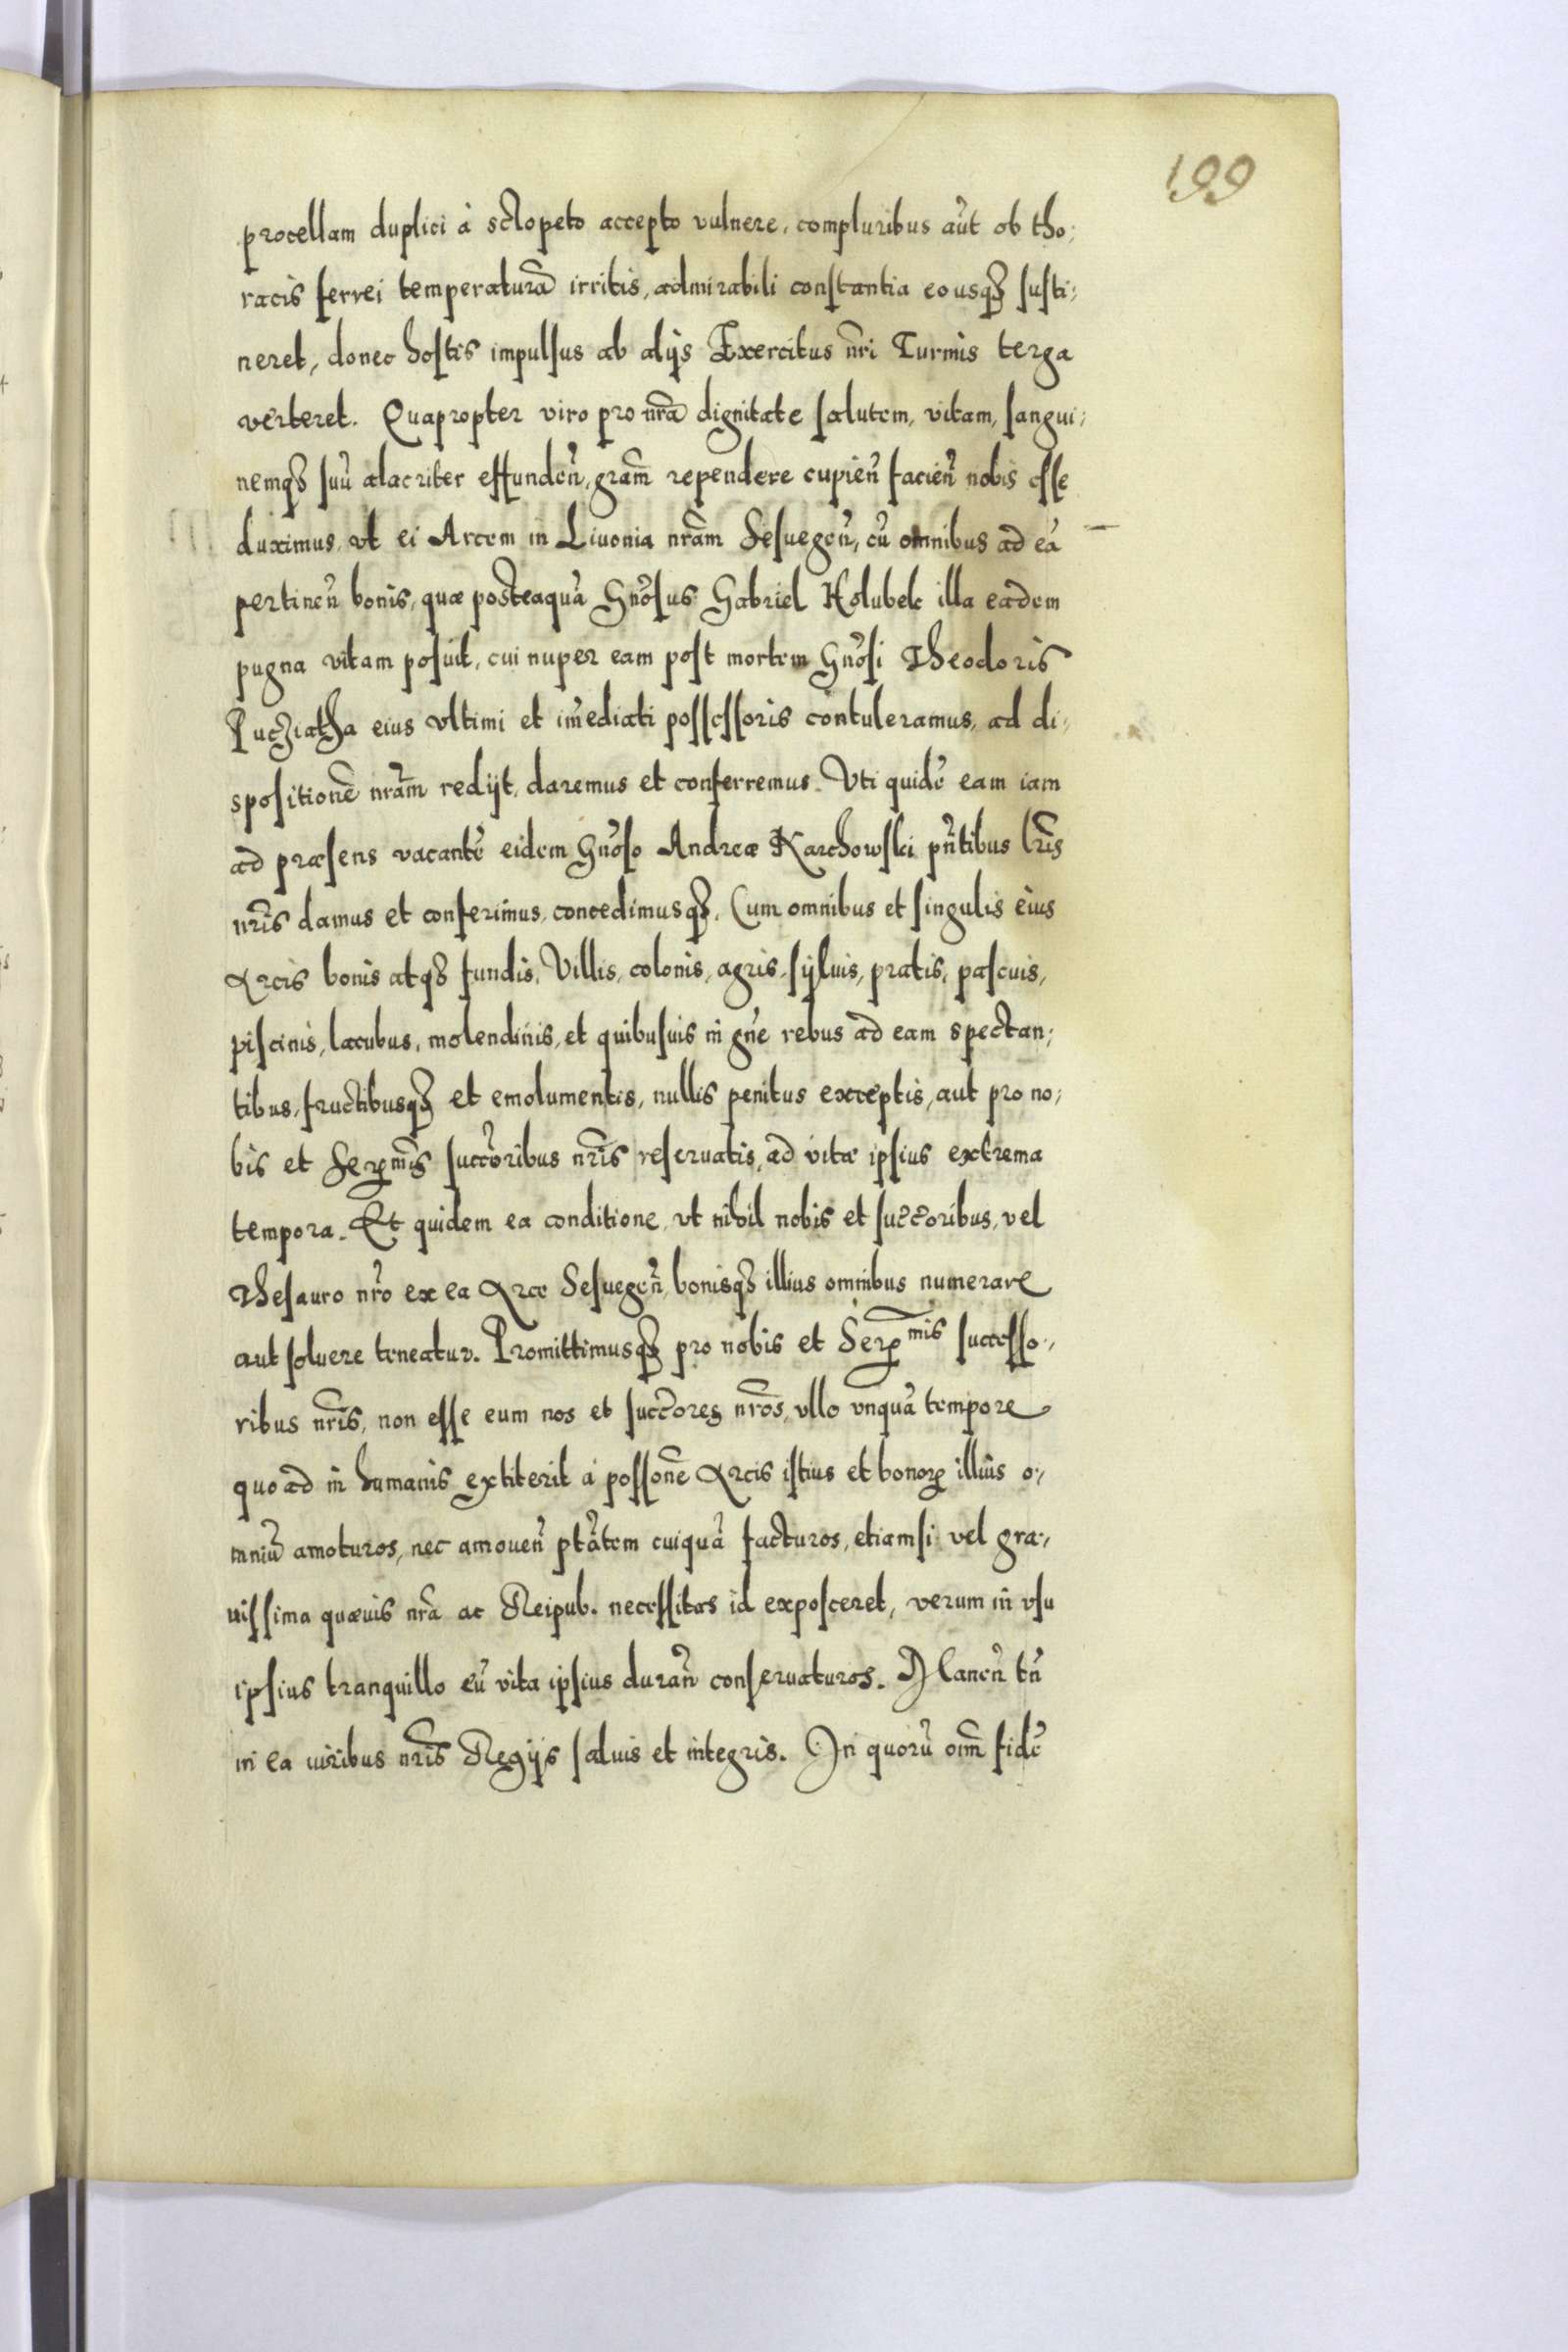 199
procellam duplici à sclopeto accepto vulnere, compluribus aũt ob tho;
racis ferrei temperaturã irritis, admirabili constantia eousqꝫ susti;
neret, donec hostis impulsus ab alijs Exercitus nr̃i Turmis terga
verteret. Quapropter viro pro nr̃a dignitate salutem, vitam, sangui;
nemqꝫ suũ alacriter effundeñ, gr̃am rependere cupieñ facieñ nobis esse
duximus, vt ei Arcem in Liuonia nr̃am Sesuegeñ, cũ omnibus ad eã
pertineñ bonis, quæ posteaquã Gñosus Gabriel Holubek illa eadem
pugna vitam posuit, cui nuper eam post mortem Gñosi Theodoris
Pucziatha eius vltimi et im̃ediati possessoris contuleramus, ad di;
spositionẽ nr̃am redijt, daremus et conferremus. Vti quidẽ eam iam
ad præsens vacantẽ eidem Gñoso Andreæ Karchowski pñtibus lr̃is
nr̃is damus et conferimus, concedimusqꝫ. Cum omnibus et singulis eius
Arcis bonis atqꝫ fundis, Villis, colonis, agris, syluis, pratis, pascuis,
piscinis, lacubus, molendinis, et quibusuis in gñe rebus ad eam spectan;
tibus, fructibusqꝫ et emolumentis, nullis penitus exceptis, aut pro no;
bis et Serꝫm̃is succ̃oribus nr̃is reseruatis, ad vitæ ipsius extrema
tempora. Et quidem ea conditione, vt nihil nobis et succ̃oribus, vel
Thesauro nr̃o ex ea Arce Sesuegeñ, bonisqꝫ illius omnibus numerare
aut soluere teneatur. Promittimusqꝫ pro nobis et Serꝫmis successo;
ribus nr̃is, non esse eum nos et succ̃ores nr̃os, vllo vnquã tempore
quo ad in humanis extiterit à possoñe Arcis istius et bonorꝫ illius o;
mniũ amoturos, nec amoueñ ptãtem cuiquã facturos, etiamsi vel gra;
uissima quæuis nr̃a ac Reipub. necessitas id exposceret, verum in vsu
ipsius tranquillo eũ vita ipsius durañ conseruaturos. Maneñ tñ
in ea iuribus nr̃is Regijs saluis et integris. In quorũ om̃ fidẽ